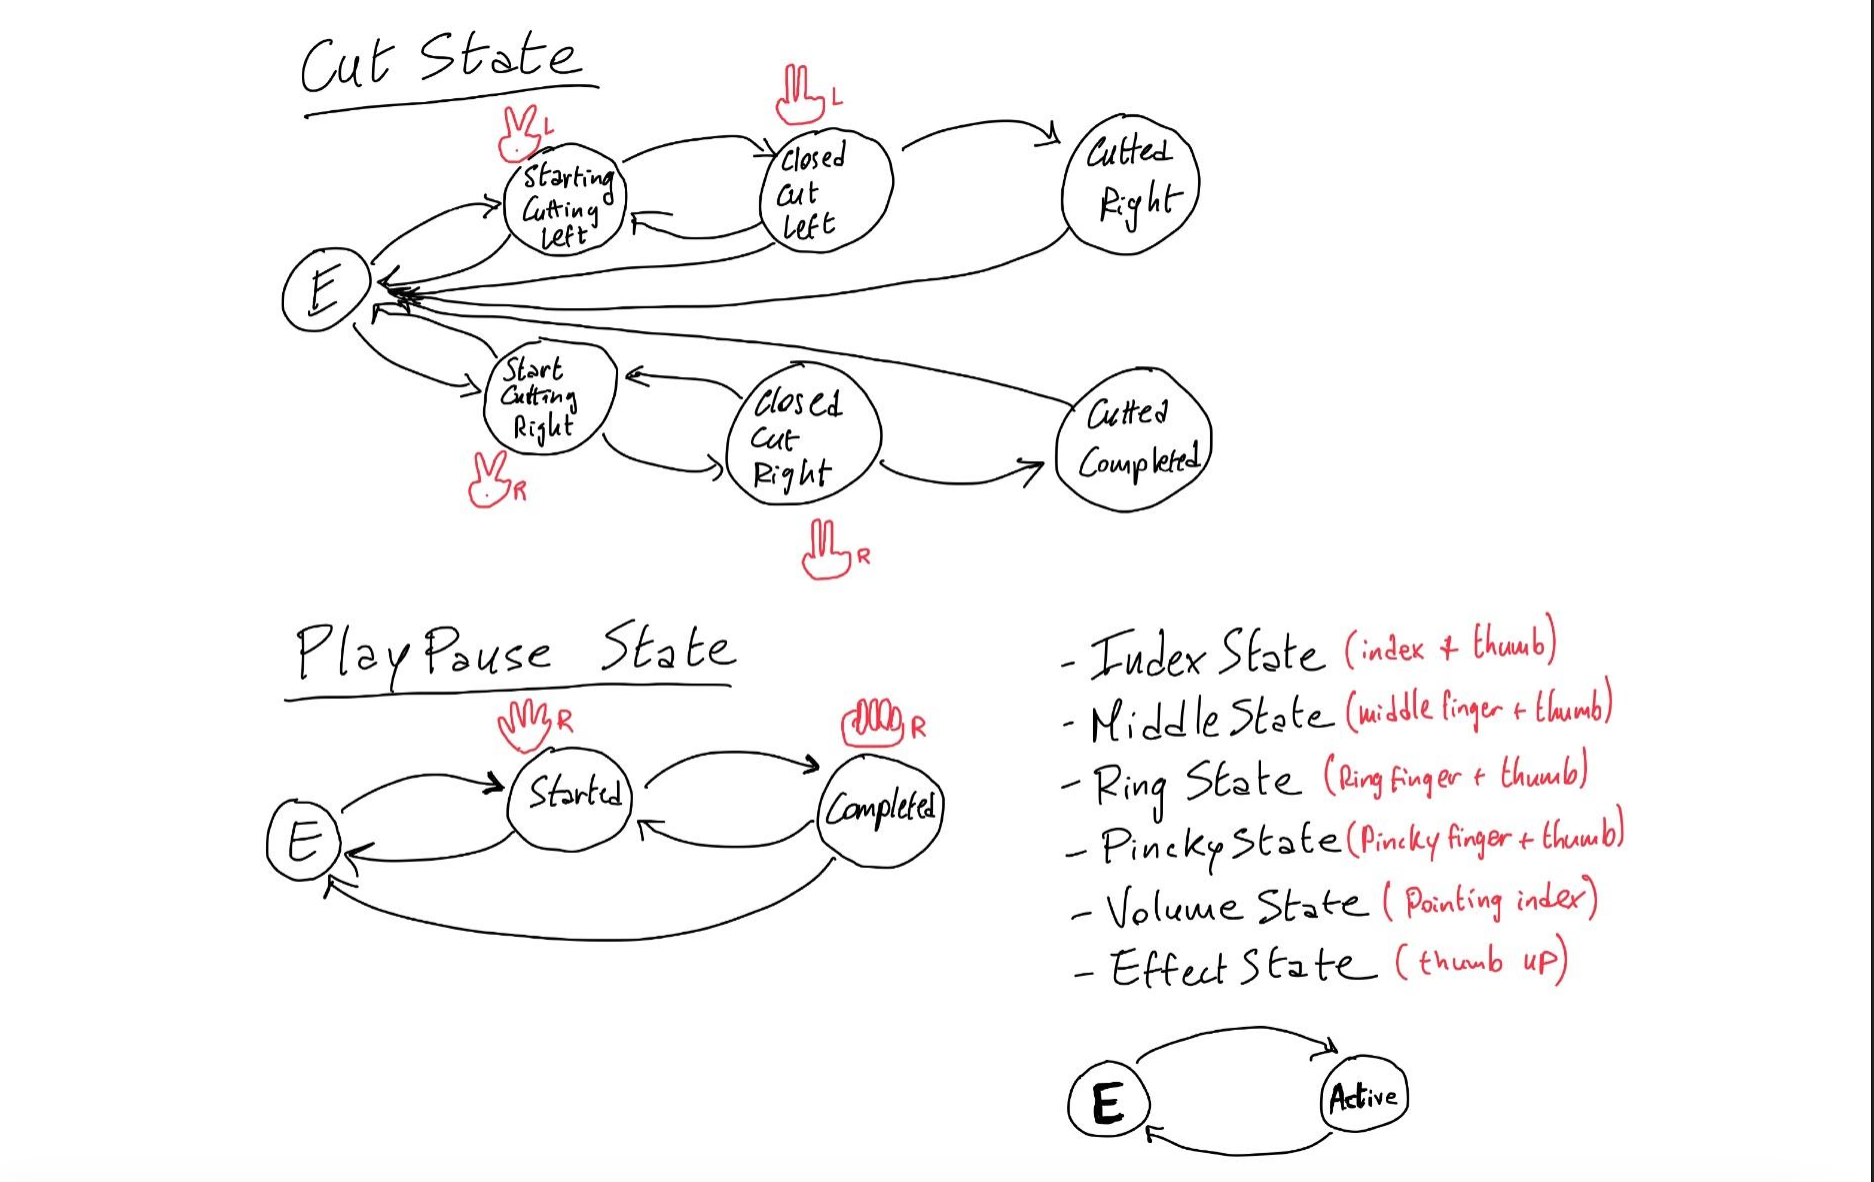 Cut State
L
L
Starting
Cutting
Left
Closed
Cut
Left
Cutted
Right
E
Start
Cutting
Right
R
Closed
Cut
Right
R
Cutted
Completed
PlayPause State
R
R
E
Started
Completed
- Index State (index + thumb)
- Middle State (middle finger + thumb)
- Ring State (Ring finger + thumb)
- Pincky State (Pincky finger + thumb)
- Volume State (Pointing index)
- Effect State (thumb up)
E
Active